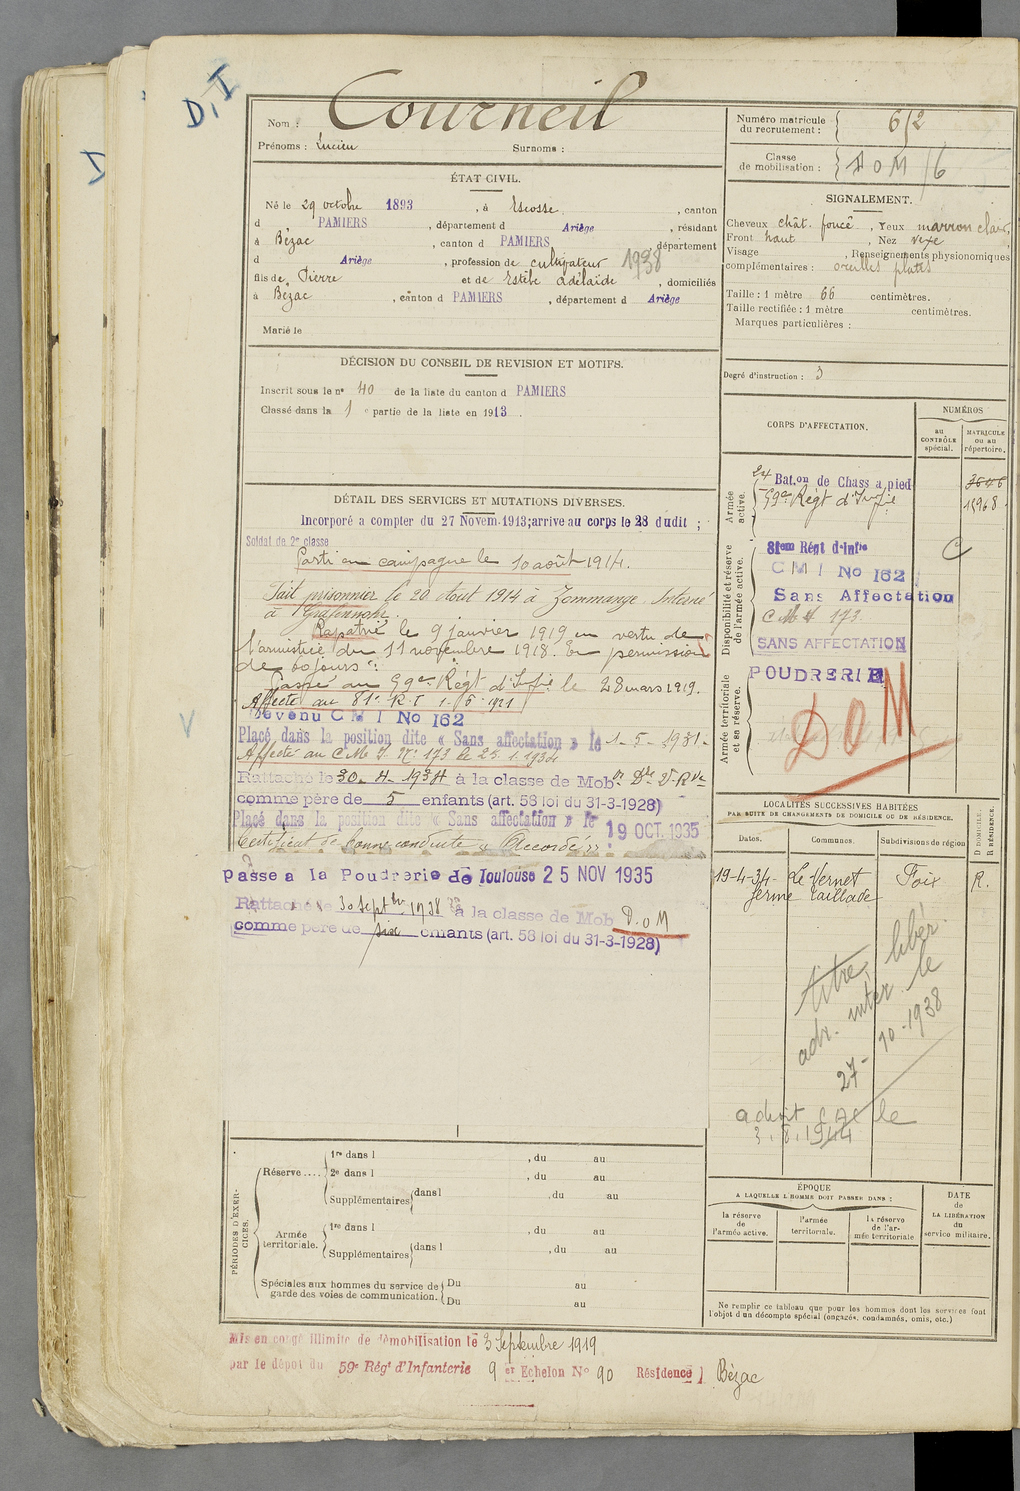 D.I
D
Nom : Courneil
Prénoms : Lucien Surnoms :
Numéro matricule du recrutement : 612
Classe de mobilisation : D O M / 6
ÉTAT CIVIL.
Né le 29 octobre 1893, à Escosse, canton
d PAMIERS, département d Ariège, résidant
à Bézac, canton d PAMIERS, département
d Ariège, profession de cultivateur 1938
fils de Pierre et de Estèbe Adélaïde, domiciliés
à Bézac, canton d PAMIERS, département d Ariège
Marié le
SIGNALEMENT.
Cheveux chât. foncé, Yeux marron clair,
Front haut, Nez vexe
Visage, Renseignements physionomiques
complémentaires : oreilles plates
Taille : 1 mètre 66 centimètres.
Taille rectifiée : 1 mètre centimètres.
Marques particulières :
Degré d'instruction : 3
DÉCISION DU CONSEIL DE REVISION ET MOTIFS.
Inscrit sous le nº 40 de la liste du canton d PAMIERS
Classé dans la 1e partie de la liste en 1913.
DÉTAIL DES SERVICES ET MUTATIONS DIVERSES.
Incorporé a compter du 27 Novem. 1913; arrive au corps le 28 dudit ;
Soldat de 2e classe
Parti en campagne le 10 août 1914.
Fait prisonnier le 20 Août 1914 à Zommange. Interné
à Grafenwohr.
Rapatrié le 9 janvier 1919 en vertu de
l'armistice du 11 novembre 1918. En permission
de 60 jours.
Passé au 59e Régt d'Infie le 28 mars 1919.
Affecté au 81e R.I 1-6-1921
devenu C M I No 162
Placé dans la position dite « Sans affectation » le 1-5-1931.
Affecté au C.M.I. Nº 173 le 25.1.1934
Rattaché le 30-4-1934 à la classe de Mob
comme père de 5 enfants (art. 58 loi du 31-3-1928)
Placé dans la position dite « Sans affectation » le 19 OCT. 1935
Certificat de bonne conduite « Accordé »
passe a la Poudrerie de Toulouse 25 NOV 1935
Rattaché le 30 Septbre 1938 à la classe de Mob D.O.M
comme père de six enfants (art. 58 loi du 31-3-1928)
CORPS D'AFFECTATION.
NUMÉROS
au CONTRÔLE spécial.
MATRICULE ou au répertoire.
Armée active.
24 Bat.on de Chass a pied
59e Régt d'Infie
Disponibilité et réserve de l'armée active.
81em Régt d'Infie
C
C M I No 162
Sans Affectation
C.M.I. 173
SANS AFFECTATION
POUDRERIE
Armée territoriale et sa réserve.
D O M
LOCALITÉS SUCCESSIVES HABITÉES
PAR SUITE DE CHANGEMENTS DE DOMICILE OU DE RÉSIDENCE.
Dates. Communes. Subdivisions de région
D DOMICILE.
R RÉSIDENCE.
19-4-34- Le Vernet Foix R.
ferme taillade
titre libér
adr. intér. le
27-10-1938
le
3.8.1944
PÉRIODES D'EXERCICES.
Réserve....
1re dans l , du au
2e dans l , du au
Supplémentaires dans l , du au
Armée territoriale.
1re dans l , du au
Supplémentaires dans l , du au
Spéciales aux hommes du service de garde des voies de communication.
Du au
Du au
ÉPOQUE
A LAQUELLE L'HOMME DOIT PASSER DANS :
la réserve de l'armée active.
l'armée territoriale.
la réserve de l'armée territoriale
DATE de LA LIBÉRATION du service militaire.
Ne remplir ce tableau que pour les hommes dont les services font
l'objet d'un décompte spécial (engagés, condamnés, omis, etc.)
Mis en congé illimité de démobilisation le 3 Septembre 1919
par le dépôt du 59e Régt d'Infanterie 9 er Echelon No 90 Résidence ) Bézac